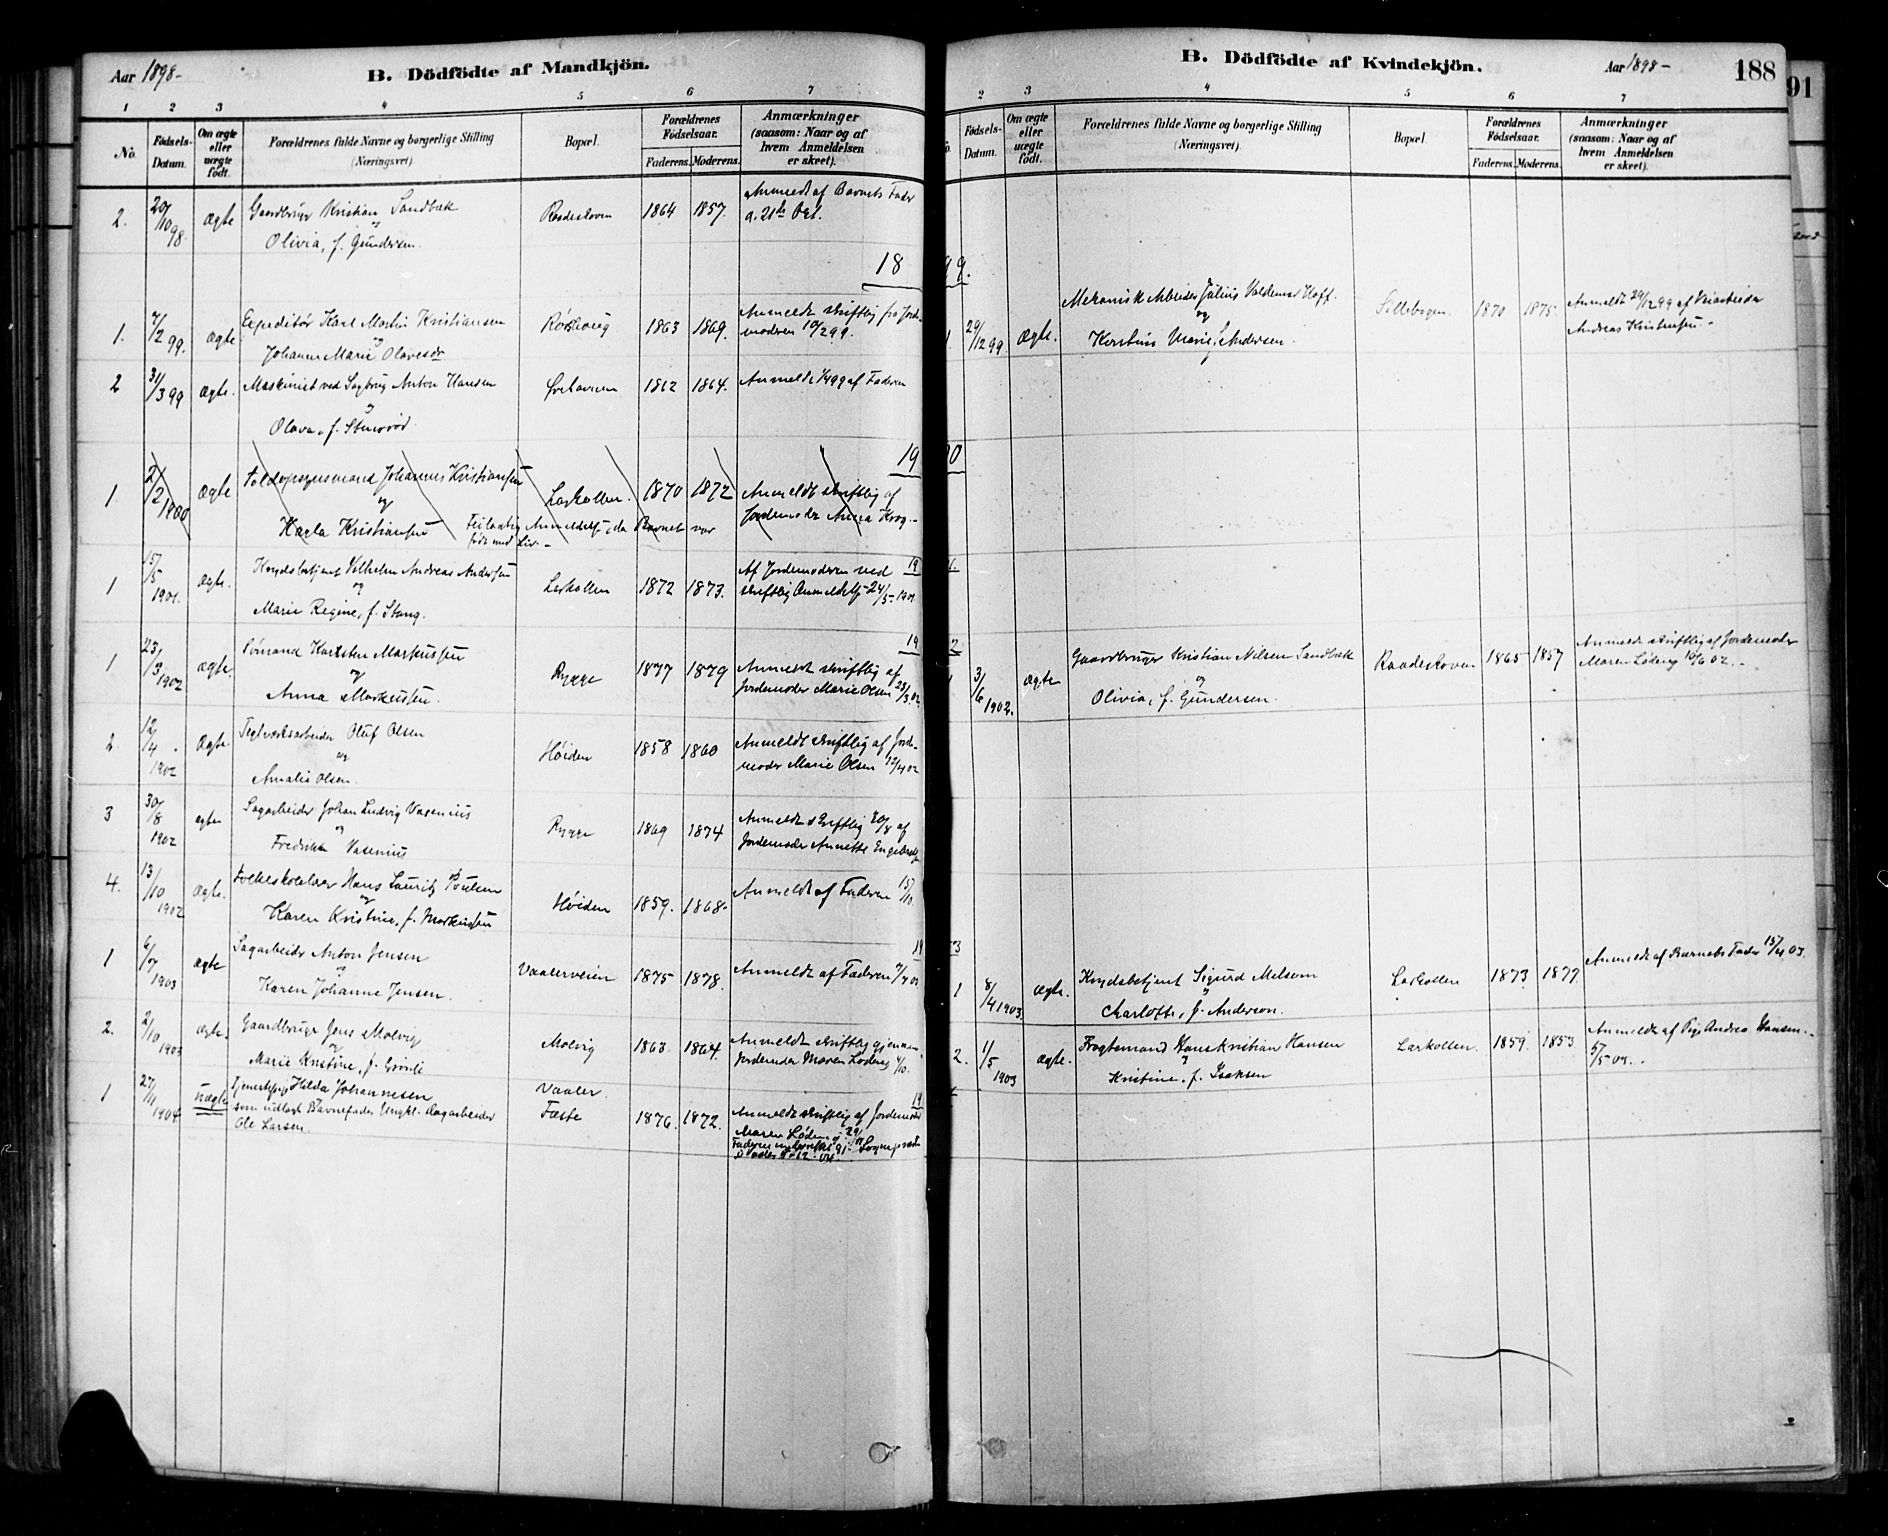 Aar 1898-
B. Dödfödte af Mandkjön.
1 2 3 4 5 6 7
No. Födsels-Datum. Om ægte eller uægte födt. Forældrenes fulde Navne og borgerlige Stilling (Næringsvei). Bopæl. Forældrenes Födselsaar. Faderens. Moderens. Anmærkninger (saasom: Naar og af hvem Anmeldelsen er skeet).
2. 20/10 98. Ægte Gaardbruger Kristian Sandbæk Raadeskoven 1864 1857. Anmeldt af Barnets Fader
og
Olivia, f. Gundersen. d. 21de Okt.
18
1. 7/2 99. Ægte Expeditør Karl Martin Kristiansen 1863 1869. Anmeldt skriftlig fra Jorde-
og
Johanne Marie Olavesdr moderen 10/2 99.
2 31/3 99 Ægte. Maskinist ved Sagbrug Anton Hansen 1864. Anmeldt 1/4 99 af Faderen
og
Olava, f.
19
1 2/2 1900 Ægte Toldopsynsmand Johannes Kristiansen Larkollen. 1870 1872 Anmeldt skriftlig af
og
Karla Kristiansen Jordemoder Anna Krog.-
Feilagtig Anmeldelse, da Barnet var
født med Liv.-
19
1 15/5 1901. Ægte. Vilhelm Andreas Andersen Larkollen 1872 1873. Af Jordemoderen ved
og
Marie Regine, f. Stang. skriftlig Anmeldelse 24/5 1901
19
1 23/3 1902 Ægte. Sømand Karsten Markussen Rygge 1877 1879 Anmeldt skriftlig af
og
Anna Markussen. Jordemoder Marie Olsen 23/3 02.
2. 12/4 1902 Ægte. Teglverksarbeider Oluf Olsen Høiden 1858 1860 Anmeldt skriftlig af Jorde-
og
Amalie Olsen. moder Marie Olsen 12/4 02
3 30/8 1902 egte Sagarbeider Johan Ludvig Vasenius Rygge 1869 1874 Anmeldt skriftlig 30/8 af
og
Fredrikke Vasenius Jordemoder Annette
4. 13/10 1902 Ægte. Folkeskolelærer Hans Lauritz Poulsen Høiden 1859. 1868. Anmeldt af Faderen 15/10.
og
Karen Kristine, f. Markussen
19
1 6/7 1903 Ægte Sagarbeider Anton Jensen Vaalerveien 1875 1878. Anmeldt af Faderen
og
Karen Johanne Jensen.
2. 2/10 1903 Ægte. Gaardbruger Jens Molvig Molvig 1863 1864. Anmeldt skriftlig gjennem
og
Marie Kristine, f. Grønli Jordemoder Maren Løden
19
1 27/11 1904 uægte Hilda Johannesen Vaaler
som udlagt Barnefader Ungkl. Sagarbeider 1876. 1872. Anmeldt skriftlig af Jordemoder
Ole Larsen. Maren

B. Dödfödte af Kvindekjön.
Aar 1898-
188
91
2 3 4 5 6 7
No. Födsels-Datum. Om ægte eller uægte födt. Forældrenes fulde Navne og borgerlige Stilling (Næringsvei). Bopæl. Forældrenes Födselsaar. Faderens. Moderens. Anmærkninger (saasom: Naar og af hvem Anmeldelsen er skeet).
99.
1 29/12 99 Ægte. Mekanisk Arbeider Julius Valdemar Hoff 1870 1875. Anmeldt 29/12 99 af
og
Marie, f. Andersen. Andreas Kristensen.-
00
1.
2
1 3/6 1902. Ægte Gaardbruger Kristian Nilsen Sandbæk Raadeskoven 1865 1857 Anmeldt skriftlig af Jordemoder
og
Olivia, f. Gundersen. Maren
3
1 8/4 1903. Ægte. Sigurd Melsom Larkollen 1873 1877. Anmeldt af Barnets Fader 15/4 03.
og
Charlotte, f. Anderson.
2. 1/5 1903 Ægte. Fragtemand Hans Kristian Hansen Larkollen. 1859. 1853 Anmeldt af Pige Andrea Hansen.
og
Kristine, f. Isaksen 5/5 03.